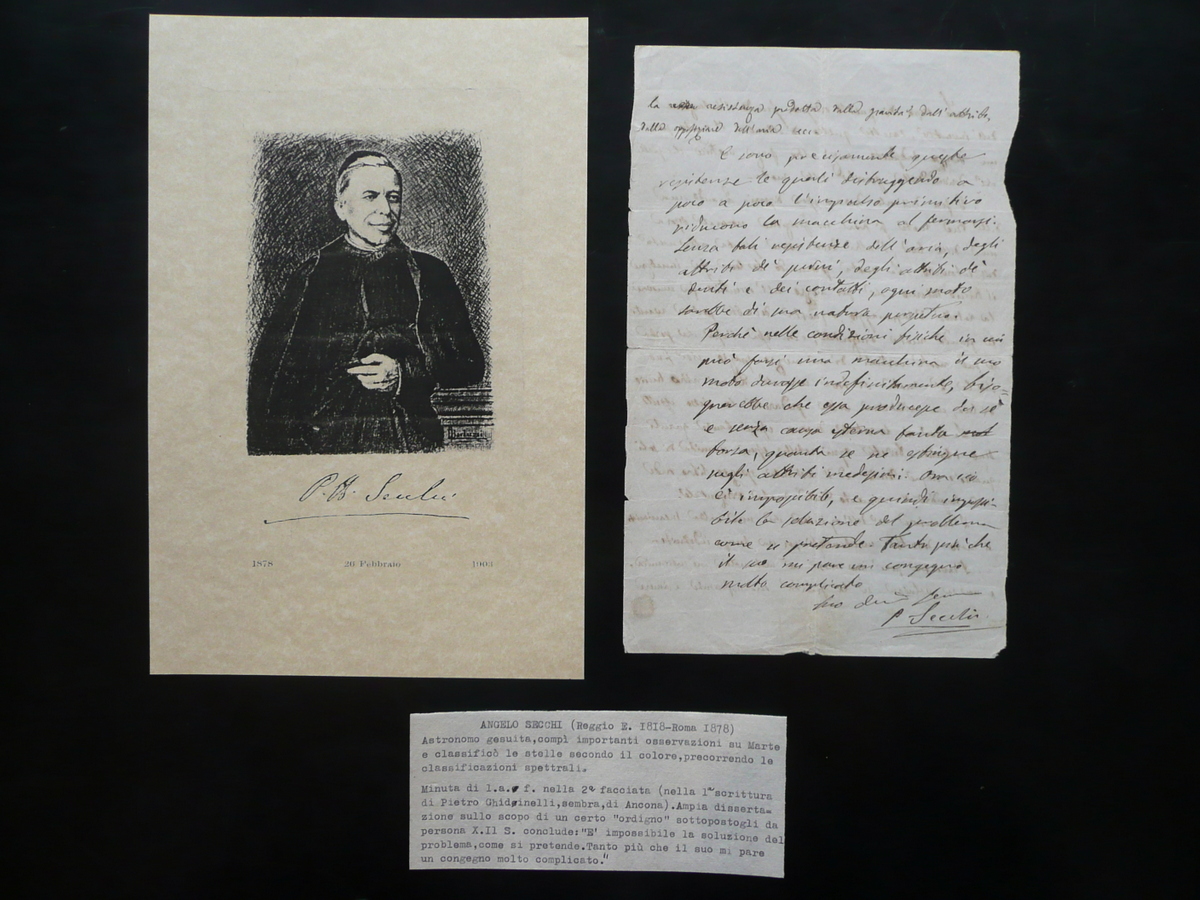 P. A. Secchi
1878 26 Febbraio 1903
la resistenza prodotta dalla gravità, dall'attrito,
dalla opposizione dell'aria ecc.
E sono precisamente queste
resistenze le quali distruggendo a
poco a poco l'impulso primitivo
riducono la macchina al fermarsi.
Senza tali resistenze dell'aria, degli
attriti de' perni, degli attriti de'
denti e dei contatti, ogni moto
sarebbe di sua natura perpetuo.
Perchè nelle condizioni fisiche in cui
può farsi una macchina il suo
moto durasse indefinitamente, biso=
gnerebbe che essa producesse da sè
e senza causa esterna tanta
forza, quanta se ne estingue
negli attriti medesimi. Ora ciò
è impossibile, e quindi impossi-
bile la soluzione del problema
come si pretende. Tanto più che
il suo mi pare un congegno
molto complicato
Suo
P. Secchi
ANGELO SECCHI (Reggio E. 1818-Roma 1878)
Astronomo gesuita,compì importanti osservazioni su Marte
e classificò le stelle secondo il colore,precorrendo le
classificazioni spettrali.
Minuta di l.a. f. nella 2ª facciata (nella 1ª scrittura
di Pietro Ghidinelli,sembra,di Ancona).Ampia disserta-
zione sullo scopo di un certo "ordigno" sottopostogli da
persona X.Il S. conclude:"E' impossibile la soluzione del
problema,come si pretende.Tanto più che il suo mi pare
un congegno molto complicato."